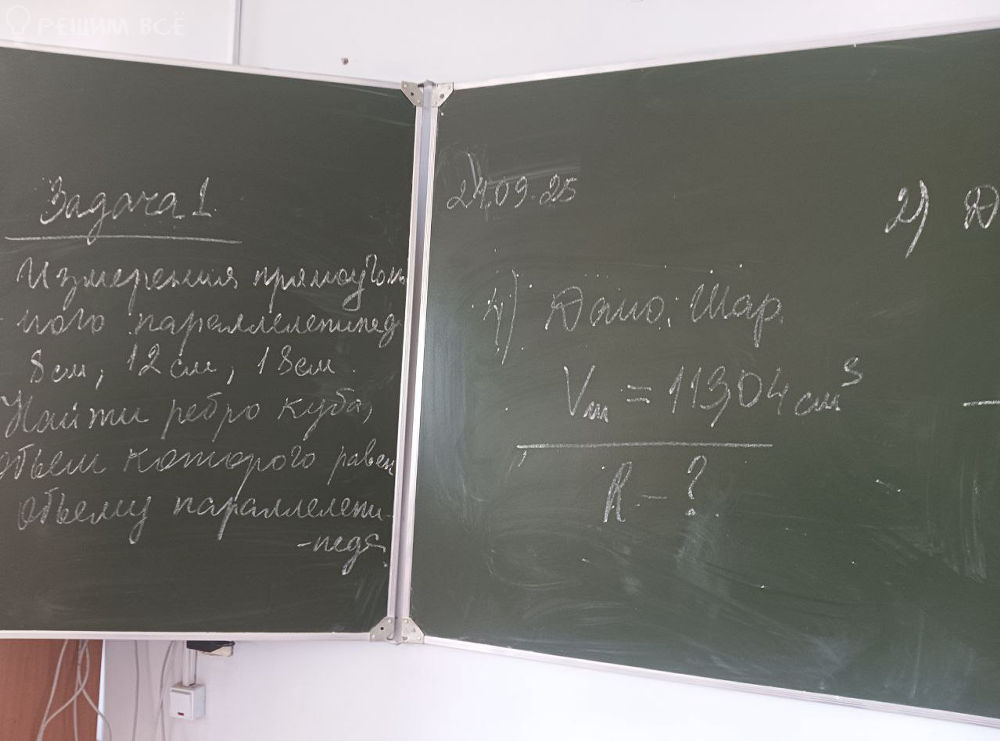 РЕШИМ ВСЁ
Задача 1
Измерения прямоуголь
-ного параллелепипеда
8см, 12 см, 18см.
Найти ребро куба,
объем которого равен
объему параллелепи-
-педа.
24.09.25
1) Дано: Шар.
Vш = 113,04 см³
R - ?
2) Д